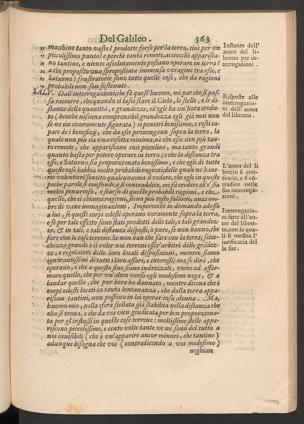 Del Galileo. 363
„ macchine tanto vaste sì prodotte forse per la terra, cioè per vn
„ piccolissimo punto? e perchè tanto remote, acciocchè apparisca-
„ no tantine, e niente assolutamente possano operare in terra?
„ a che proposito vna spropositata immensa voragine tra esse, e
„ Saturno? frustratorie sono tutte quelle cose, che da ragioni
„ probabili non son sostenute.
XALV. Dall'interrogazioni, che fà quest'huomo, mi par che si pos-
sa raccorre, che quando si lasci stare il Cielo, le stelle, e le di-
stanze della quantità, e grandezze,
se ne via sicuramente sgorata) si
per de i benefizij, che da esse prouengono sopra la terra, la
quale non più sia vna cosetta minima, che esse vien più tan-
to remote, che appariscano così piccoline, ma tanto grandi
quanto basta per poter operare in terra; e che la distanza tra
esse, e Saturno sia proporzionata benissimo, e che egli di tutte
queste cose habbia molto probabili ragioni delle quali
volentieri sentito qualcuna; ma il vedere, che egli in queste
poche parole si confonde, e si contradice, mi fà credere ch'e' sia
molto penurioso, e scarso di quelle probabili ragioni, e che,
quelle, che ei chiama ragioni, sieno più tosto fallacie, anzi om-
bre di vane immaginazioni.
lui, se questi corpi celesti operano veramente sopra la terra,
e se per tale effetto sono stati prodotti delle tali, e tali grandez-
ze, & in tali, e tali distanze disposti, o pure, se non hanno, che
far colle cose terrene. Se non han che fare con la terra; scioc-
chezza grande è il voler noi terreni esser arbitri delle grandez-
ze, e regolatori delle loro locali disposizioni, mentre siamo
ignorantissimi di tutti i loro affari, e interessi; ma se dirà, che
operano, e che a questo fine siano indrizzati, viene ad affer-
mare quello, che per vn'altro verso egli medesimo nega, & a
laudar quello, che pur hora hà dannato, mentre diceua che i
corpi celesti locati in tanta lontananza, che dalla terra appa-
riscan tantini, non possono in lei operar cosa alcuna. Ma,
huomo mio, nella sfera stellata già stabilita nella distanza che
ella si troua, e che da voi vien giudicata per ben proporziona-
ta per gl'influssi in queste cose terrene: moltissime stelle appa-
riscono piccolissime, e cento volte tante ve ne sono del tutto a
noi inuisibili (che è vn'apparire ancor minori, che tantine)
adunque bisogna che voi (contradicendo a voi medesimo)
neghiate
Instanze dell'
autor del li-
bretto per in-
terrogazioni.
Risposte alle
interrogazio-
ni dell'autor
del libretto.
L'autor del li
bretto si con-
fonde, e si cõ-
tradice nelle
sue interroga-
zioni.
Interrogazio-
ni fatte all'au-
tor del libret-
to, con le qua-
li si fa mostra l'
inefficacia del
le sue.